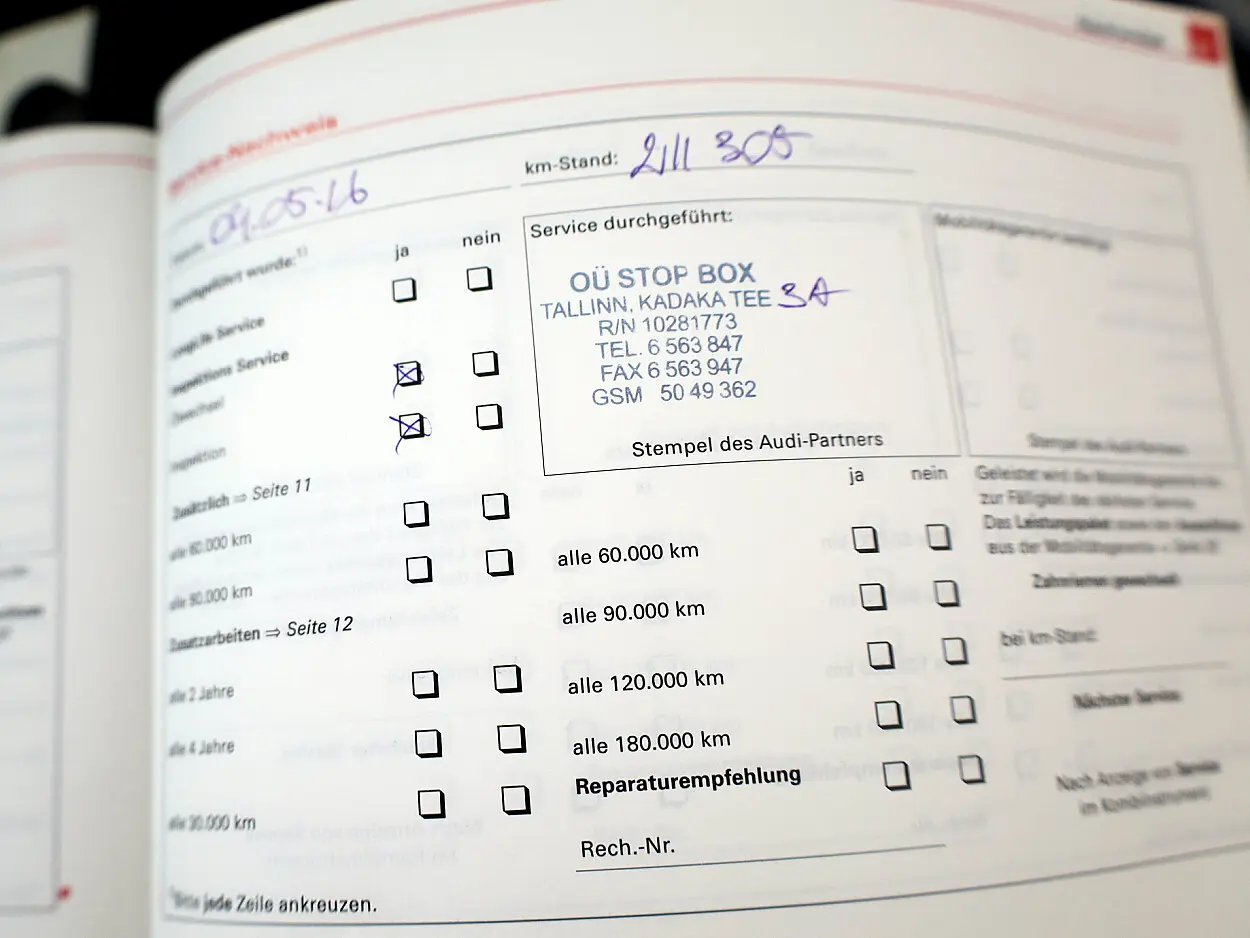 Service-Nachweis
04.05.16
km-Stand: 211 305
durchgeführt wurde:¹⁾
ja nein
LongLife Service
Inspektions Service
Ölwechsel
Inspektion
Zusätzlich ⇒ Seite 11
alle 60.000 km
alle 90.000 km
Zusatzarbeiten ⇒ Seite 12
alle 2 Jahre
alle 4 Jahre
alle 30.000 km
¹⁾Bitte jede Zeile ankreuzen.
Service durchgeführt:
OÜ STOP BOX
TALLINN, KADAKA TEE 3A
R/N 10281773
TEL. 6 563 847
FAX 6 563 947
GSM 50 49 362
Stempel des Audi-Partners
ja nein
alle 60.000 km
alle 90.000 km
alle 120.000 km
alle 180.000 km
Reparaturempfehlung
Rech.-Nr.
Stempel des Audi-Partners
Geleistet wird die Mobilitätsgarantie bis
zur Fälligkeit des nächsten Service.
Das Leistungspaket
aus der Mobilitätsgarantie
Zahnriemen gewechselt
bei km-Stand:
Nächster Service
Nach Anzeige von Service
im Kombiinstrument